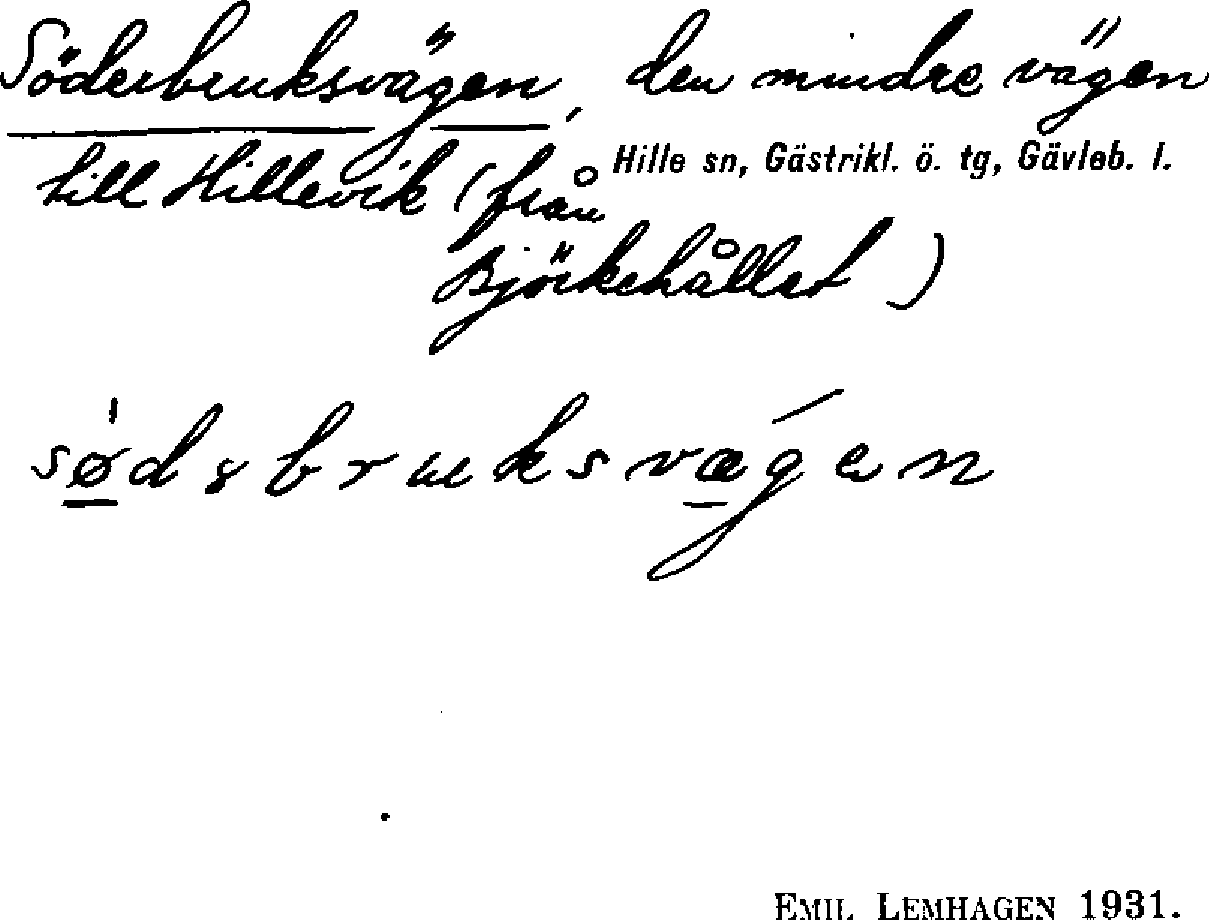 Söderbruksvägen, den mindre vägen
till Hillevik (från
Hille sn, Gästrikl. ö. tg, Gävleb. l.
Björkehållet)
EMIL LEMHAGEN 1931.